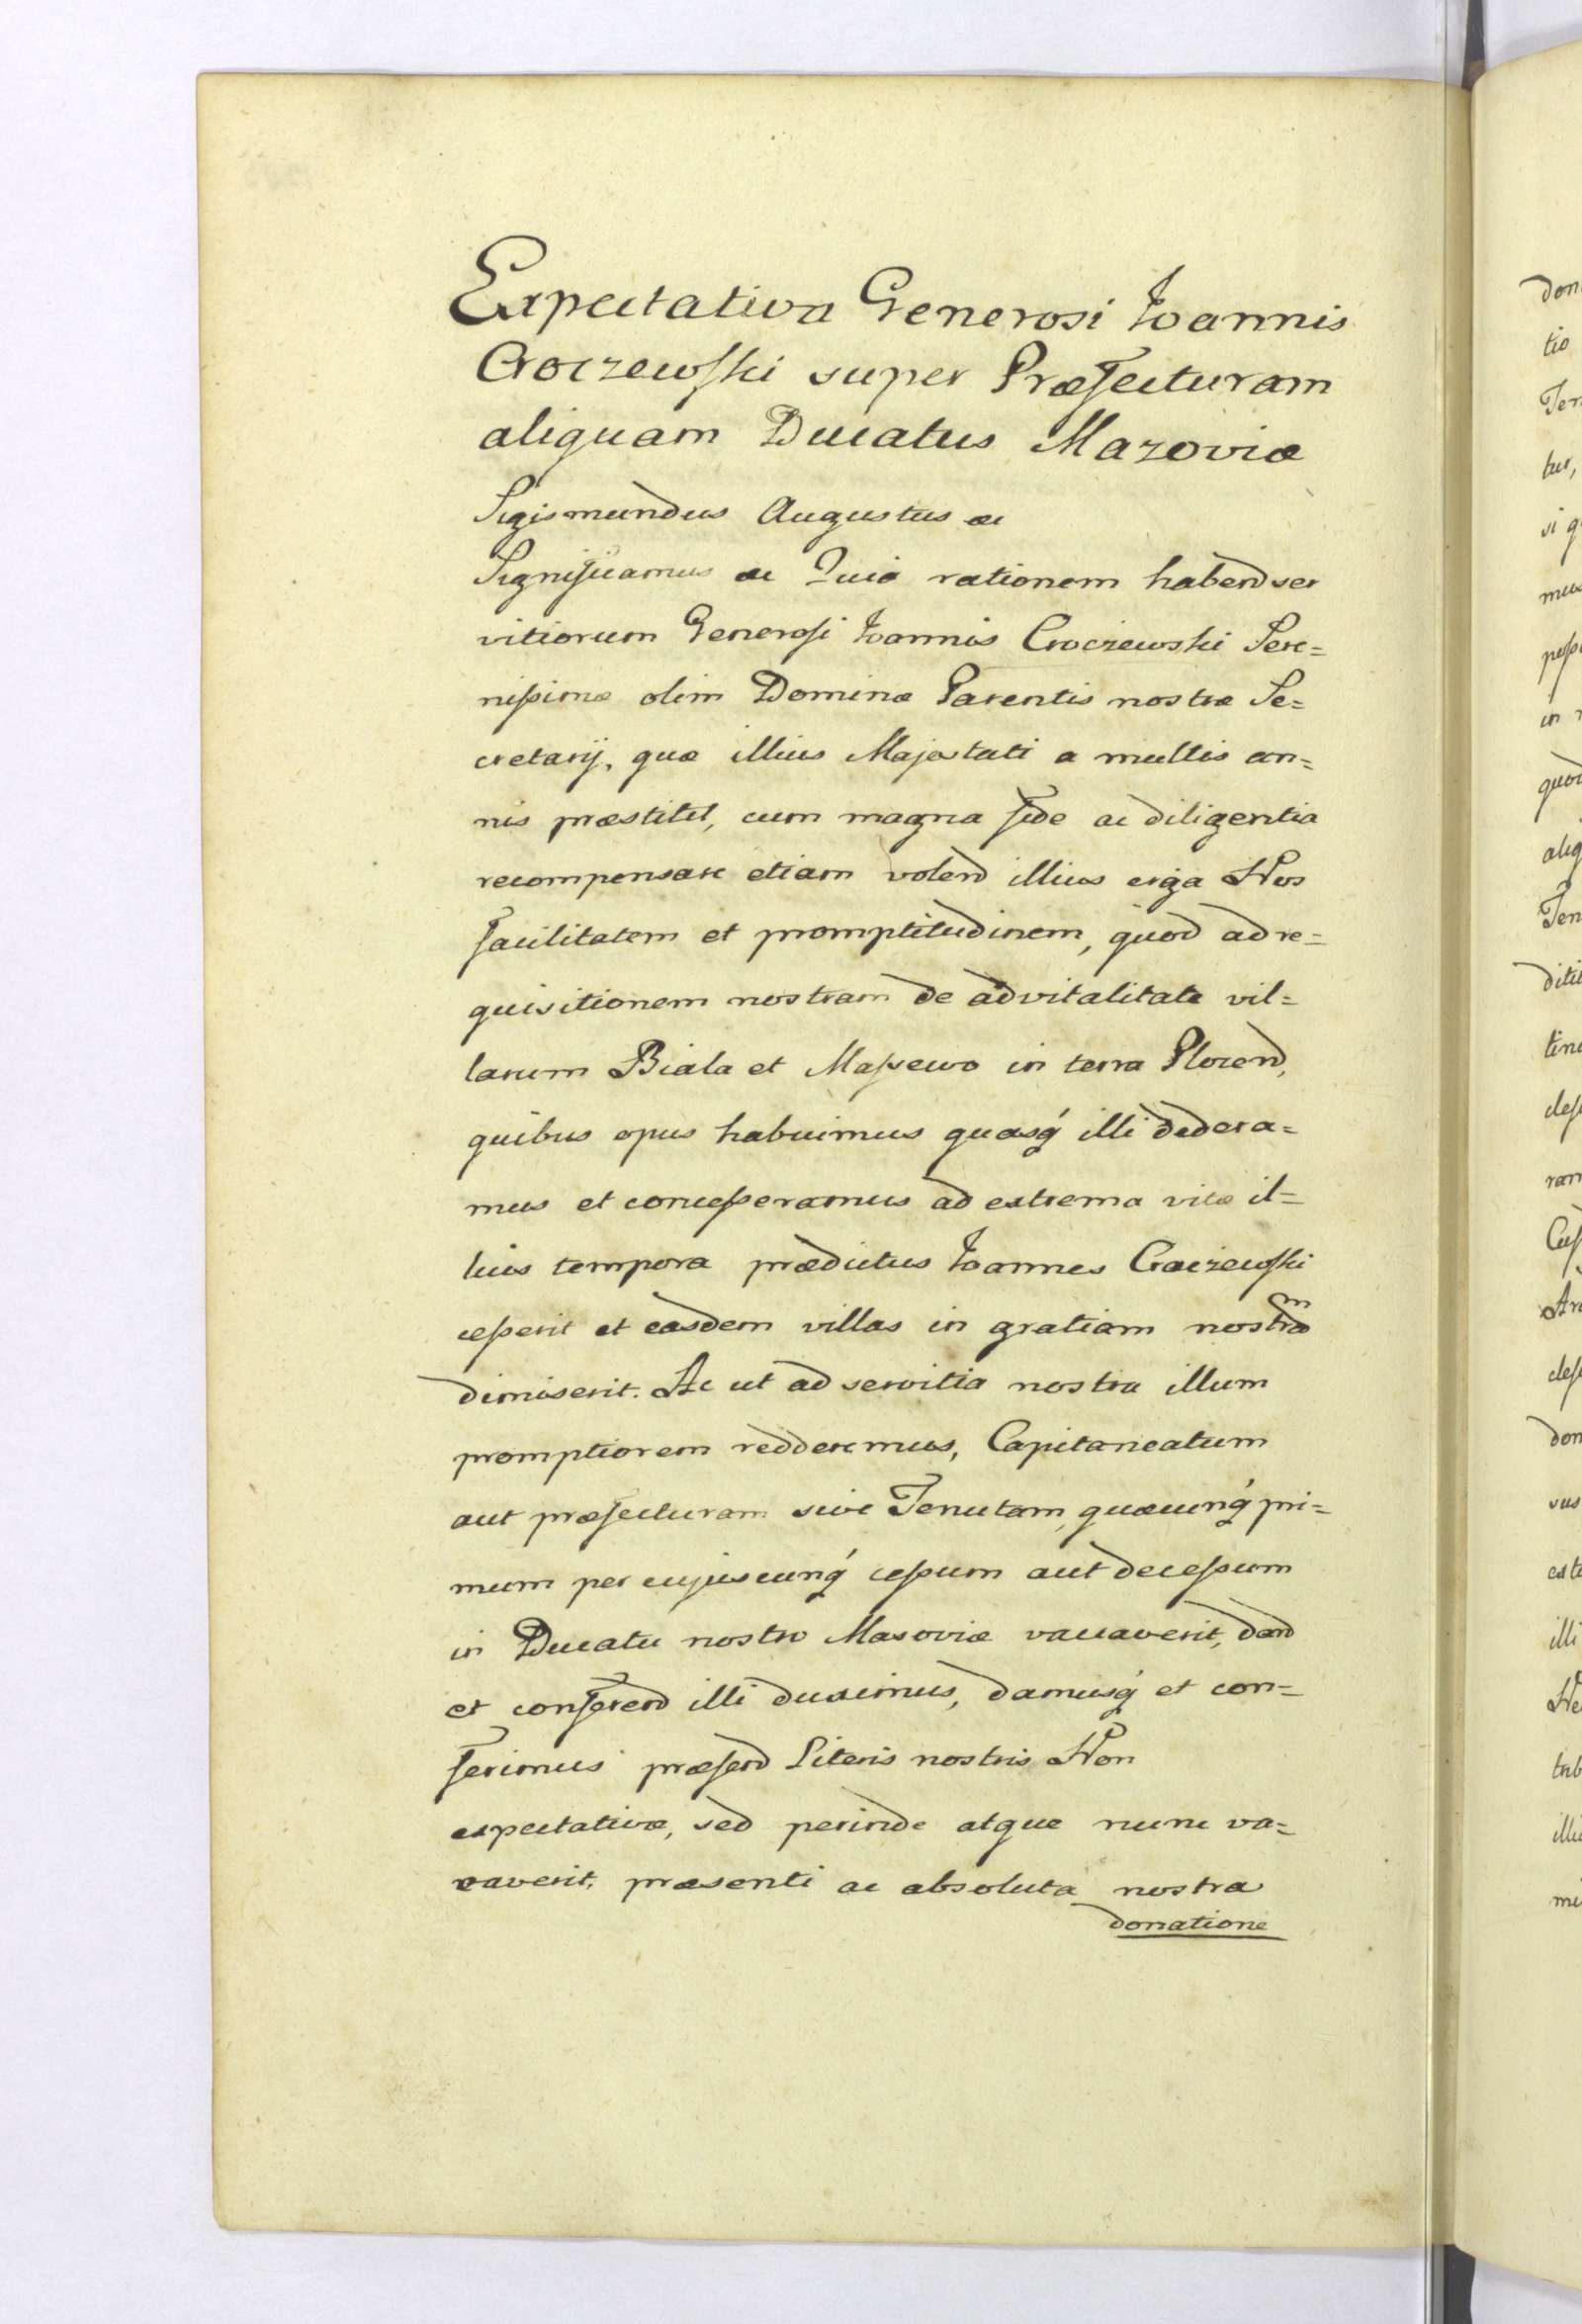 Expectativa Generosi Joannis
Croczewski super Præfecturam
aliquam Ducatus Mazoviæ
Sigismundus Augustus &c
Significamus &c Quia rationem habend ser
vitiorum Generosi Joannis Croczewski Sere=
nissimæ olim Dominæ Parentis nostræ Se=
cretarij, quæ illius Majestati a multis an=
nis præstitit, cum magna fide ac diligentia
recompensare etiam volend illius erga Nos
facilitatem et promptitudinem, quod ad re=
quisitionem nostram de advitalitate vil=
larum Biala et Massewo in terra Plocen,
quibus opus habuimus quasq́ illi dedera=
mus et concesseramus ad extrema vitæ il=
lius tempora prædictus Joannes Croczewski
cesserit et easdem villas in gratiam nostram
dimiserit. Ac ut ad servitia nostra illum
promptiorem redderemus, Capitaneatum
aut præfecturam sive Tenutam, quæcunq́ pri=
mum per cujuscunq́ cessum aut decessum
in Ducatu nostro Masoviæ vacaverit, dand
et conferend illi duximus, damusq́ et con=
ferimus præsend Literis nostris Non
expectativæ, sed perinde atque nunc va=
caverit, præsenti ac absoluta nostra
donatione
don
tio
Ter
tur,
si q
mus
poss
in
quod
aliq
Ten
ditit
tine
dess
ram
Cus
Ar
dess
don
sus
exte
illi
Ne
trib
illu
mi